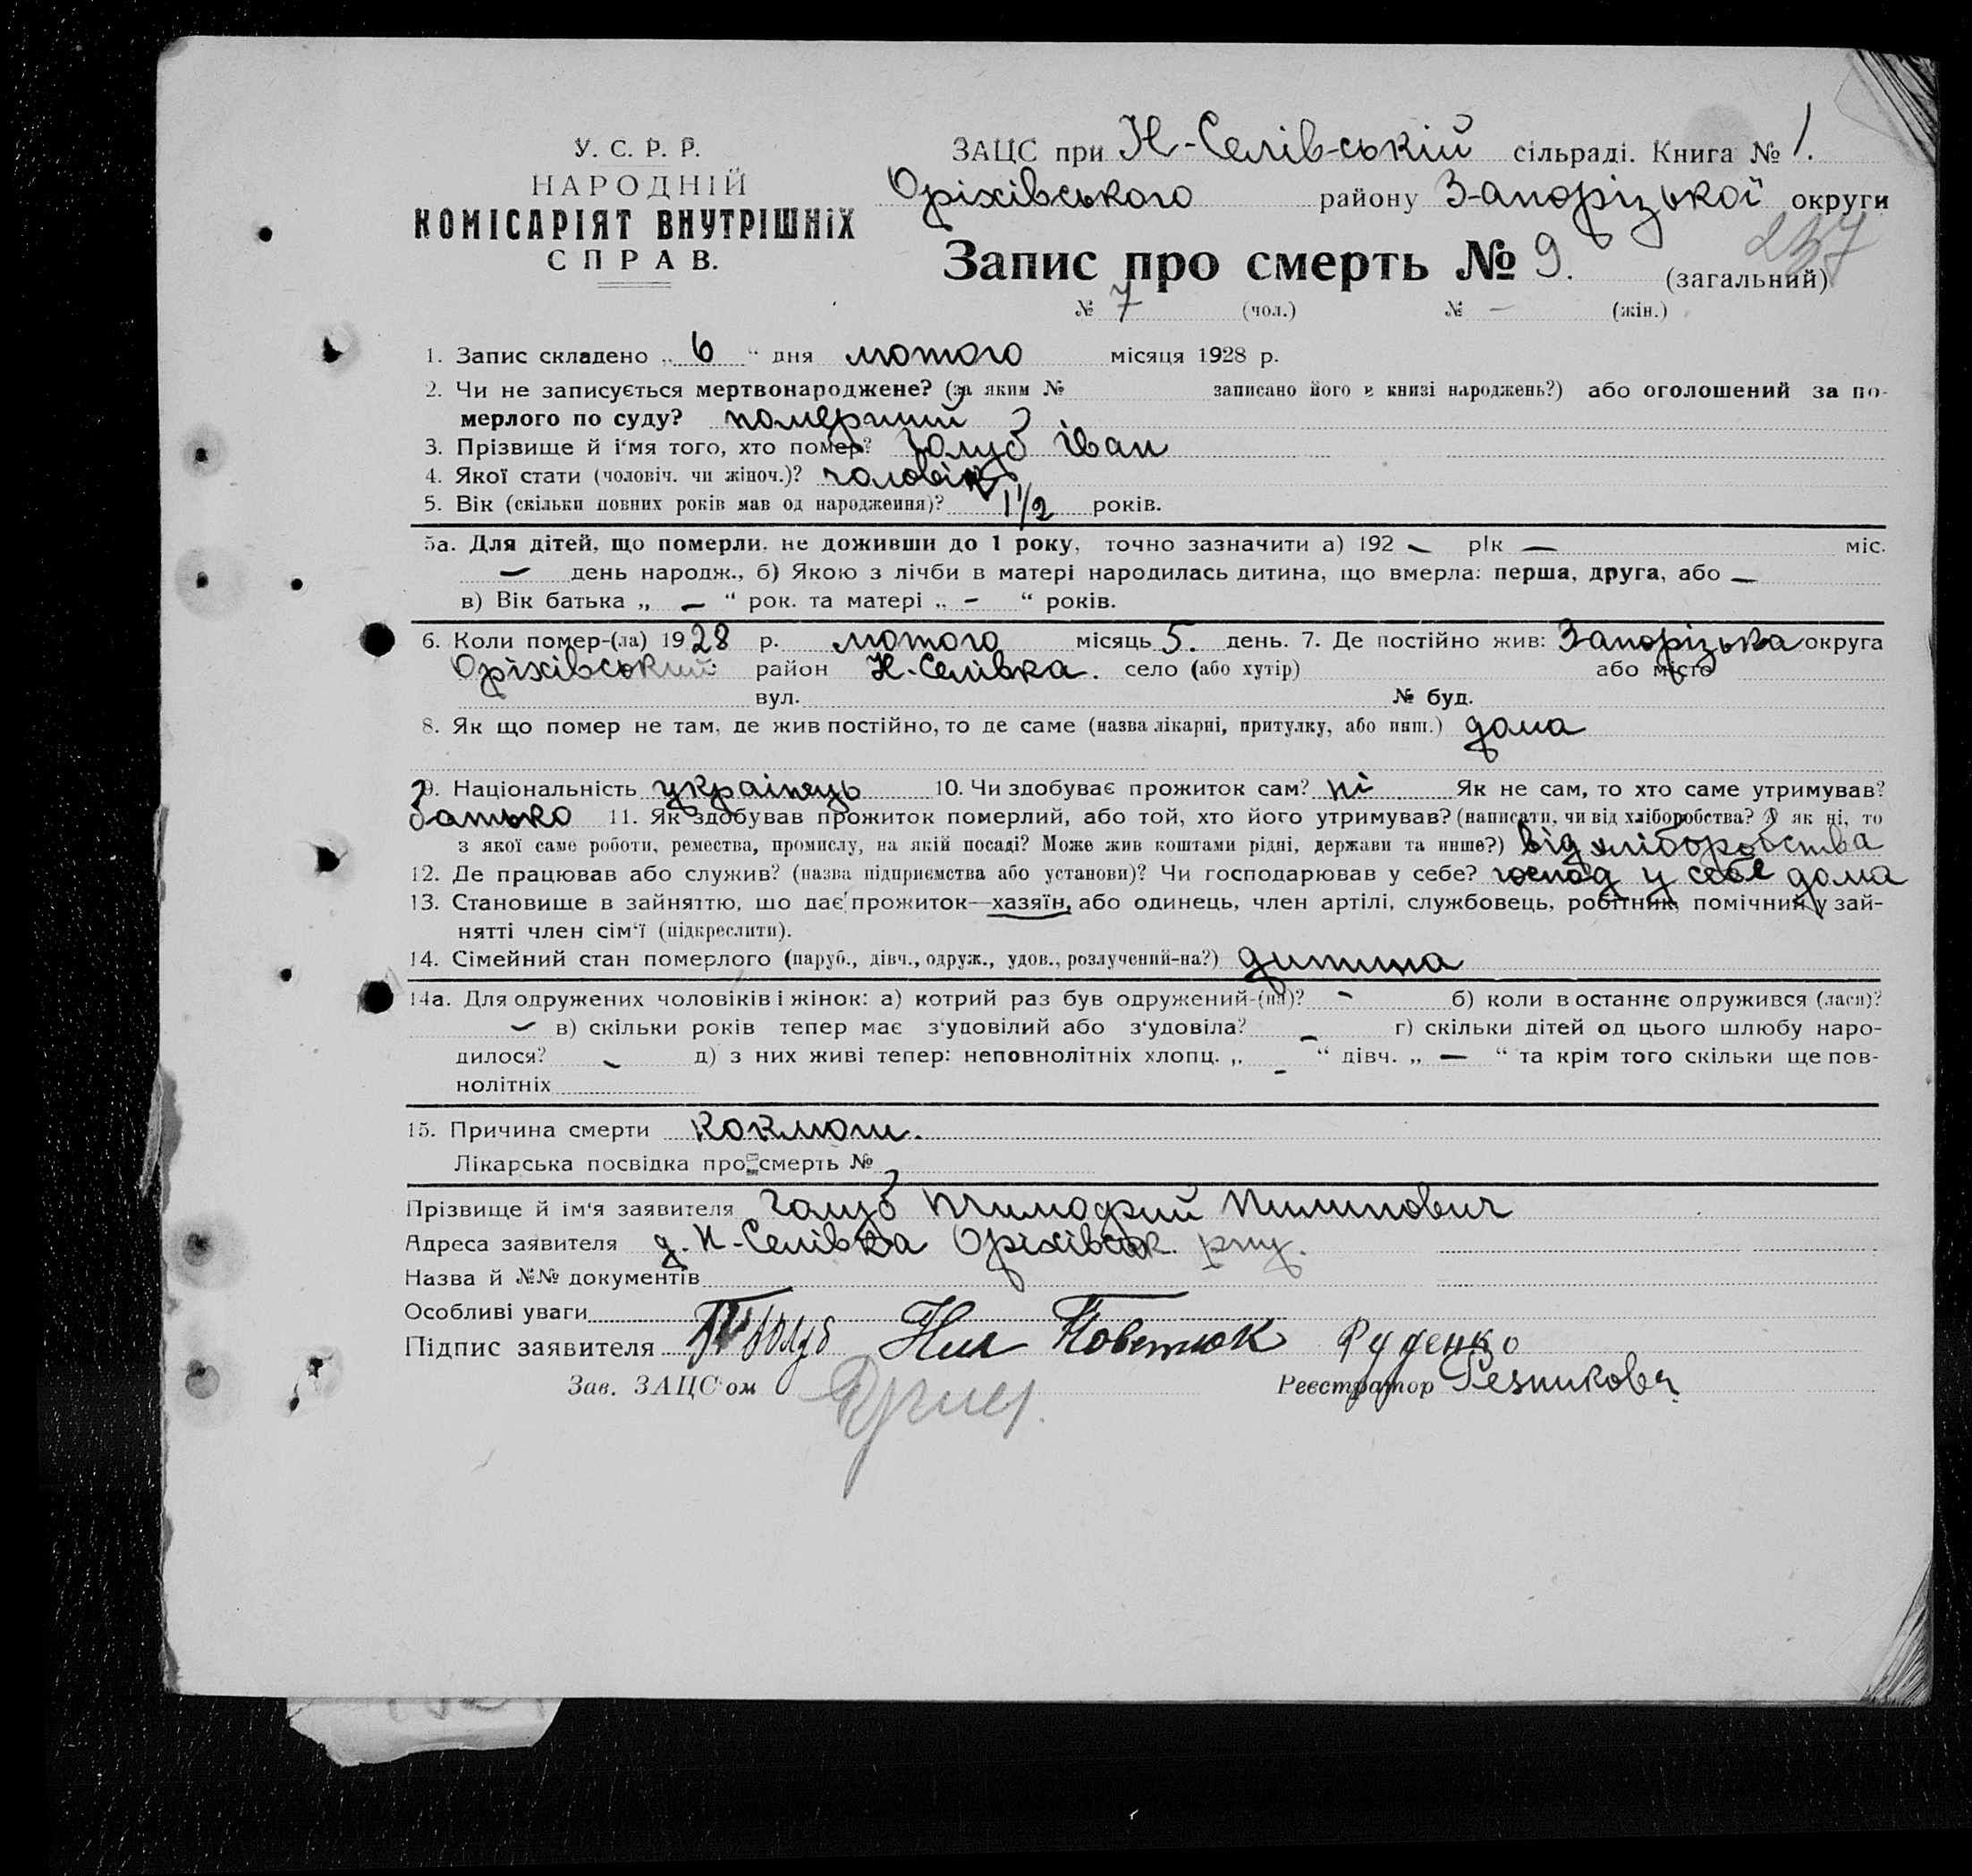 У. С. Р. Р.
НАРОДНІЙ
КОМІСАРІЯТ ВНУТРІШНІХ
СПРАВ.
ЗАЦС при Н-Селівській сільраді. Книга № 1.
Оріхівського району Запорізької округи
237
Запис про смерть № 9. (загальний)
№ 7 (чол.) № - (жін.)
1. Запис складено „ 6 “ дня лютого місяця 1928 р.
2. Чи не записується мертвонароджене? (за яким № записано його в книзі народжень?) або оголошений за по-
мерлого по суду? померший
3. Прізвище й і'мя того, хто помер? Голуб Іван
4. Якої стати (чоловіч. чи жіноч.)? чоловік
5. Вік (скільки повних років мав од народження)? 1 1/2 років.
5а. Для дітей, що померли, не доживши до 1 року, точно зазначити а) 192 — рік — міс.
— день народж., б) Якою з лічби в матері народилась дитина, що вмерла: перша, друга, або —
в) Вік батька „ — “ рок. та матері „ - “ років.
6. Коли помер-(ла) 1928 р. лютого місяць 5. день. 7. Де постійно жив: Запорізька округа
Оріхівський район Н-Селівка. село (або хутір) або місто
вул. № буд.
8. Як що помер не там, де жив постійно, то де саме (назва лікарні, притулку, або инш.) дома
9. Національність українець 10. Чи здобуває прожиток сам? ні Як не сам, то хто саме утримував?
батько 11. Як здобував прожиток померлий, або той, хто його утримував? (написати, чи від хліборобства? А як ні, то
з якої саме роботи, ремества, промислу, на якій посаді? Може жив коштами рідні, держави та инше?) від хліборобства
12. Де працював або служив? (назва підприємства або установи)? Чи господарював у себе? господ у себе дома
13. Становище в зайняттю, що дає прожиток—хазяїн, або одинець, член артілі, службовець, робітник, помічний у зай-
нятті член сім'ї (підкреслити).
14. Сімейний стан померлого (паруб., дівч., одруж., удов., розлучений-на?) дитина
14а. Для одружених чоловіків і жінок: а) котрий раз був одружений-(на)? - б) коли в останнє одружився (лася)?
— в) скільки років тепер має з'удовілий або з'удовіла? - г) скільки дітей од цього шлюбу наро-
дилося? - д) з них живі тепер: неповнолітніх хлопц. „ - “ дівч. „ — “ та крім того скільки ще пов-
нолітніх
15. Причина смерти коклюш.
Лікарська посвідка про смерть №
Прізвище й ім'я заявителя Голуб Пилипович
Адреса заявителя д. Н-Селівка Оріхівськ.
Назва й №№ документів
Особливі уваги
Підпис заявителя Голуб Руденко
Зав. ЗАЦС'ом Реєстратор